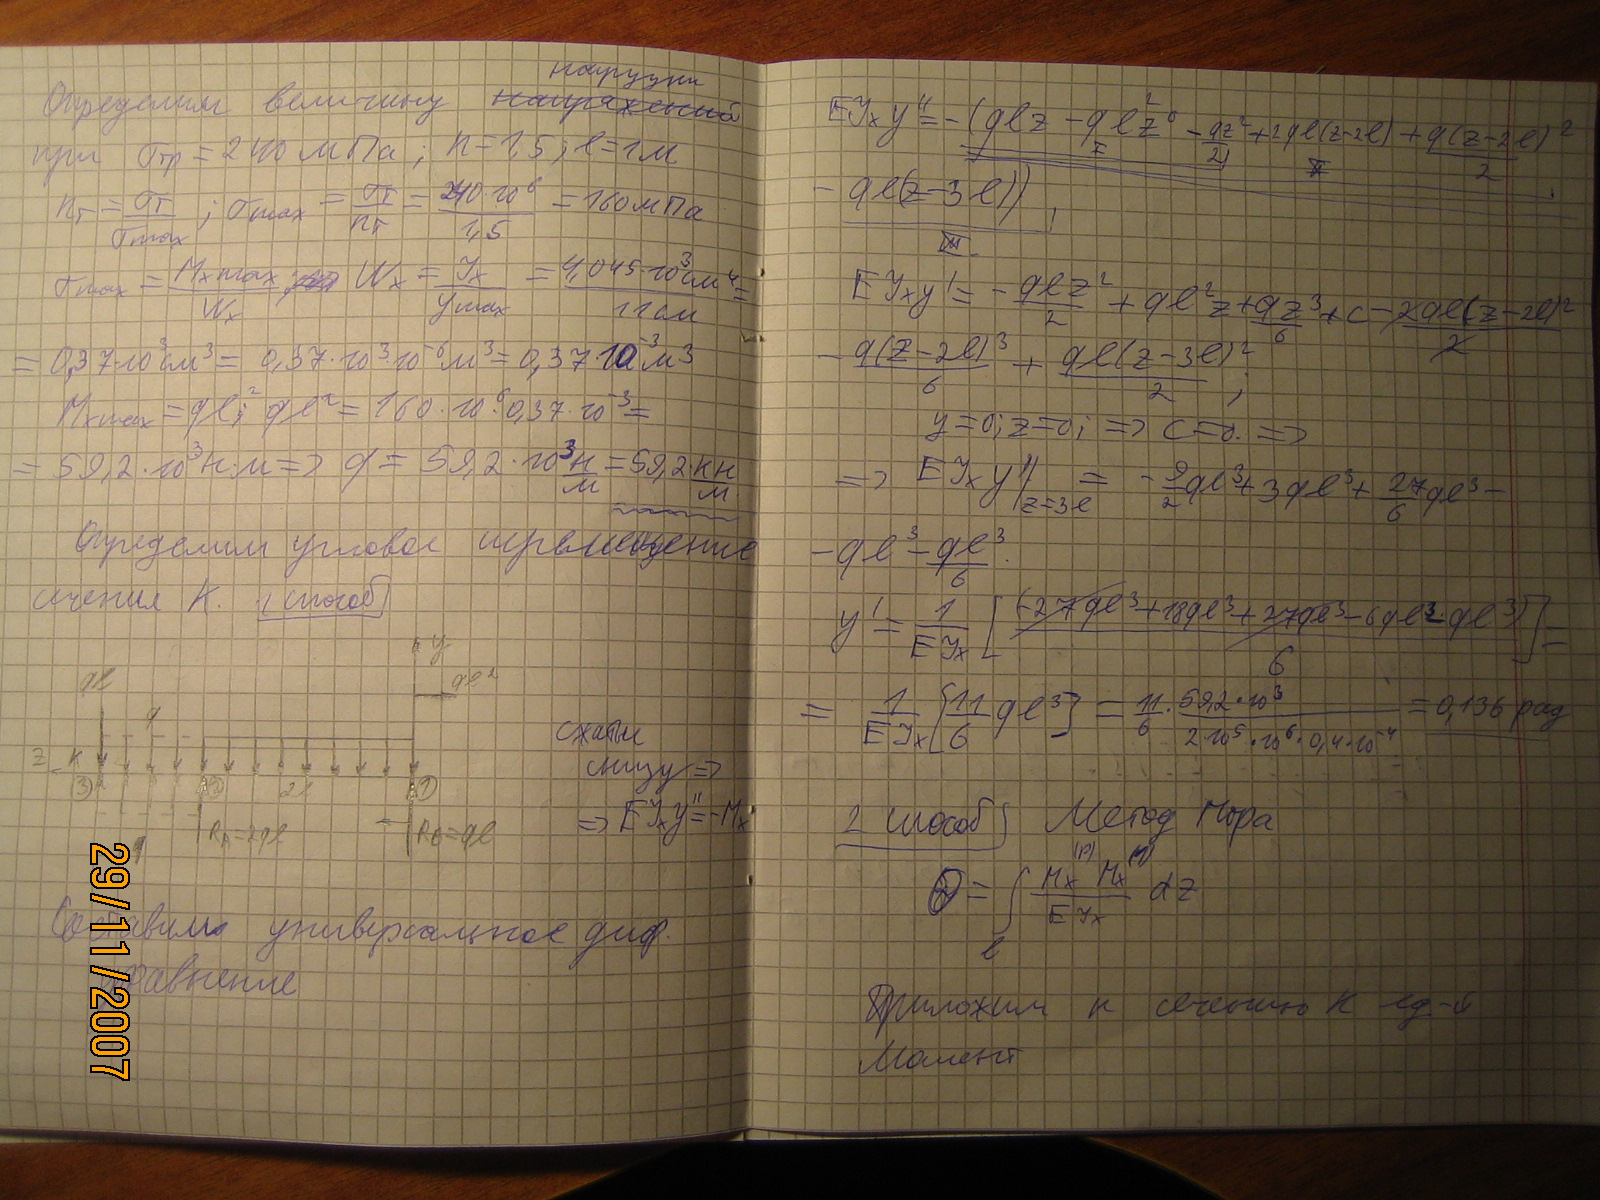 нагрузки
Определим величину напряжений
при σтр = 240 МПа; n = 1,5; l = 1м
nт = σт/σmax; σmax = σт/nт = 240·10⁶/1,5 = 160 МПа
σmax = Mx max/Wx Wx = Jx/ymax = 4,045·10³см⁴/11см =
= 0,37·10³см³ = 0,37·10³·10⁻⁶м³ = 0,37·10⁻³м³
Mx max = ql²; ql² = 160·10⁶·0,37·10⁻³ =
= 59,2·10³ н·м => q = 59,2·10³ н/м = 59,2 кн/м
Определим угловое перемещение
сечения K. 1 способ
y
ql²
ql
q
z
K
3
2
2l
1
RA = 2ql
RB = ql
сжаты
снизу =>
=> EJxy'' = -Mx
Составим универсальное диф.
уравнение
29/11/2007
EJxy'' = -(qlz - ql²z⁰ - qz²/2 + 2ql(z-2l) + q(z-2l)²/2
I
II
- ql(z-3l))
III
EJxy' = -qlz²/2 + ql²z + qz³/6 + c - 2ql(z-2l)²/2
- q(z-2l)³/6 + ql(z-3l)²/2;
y=0; z=0; => c=0. =>
=> EJxy'|z=3l = -9/2ql³ + 3ql³ + 27/6ql³ -
- ql³ - ql³/6.
y' = 1/EJx [(-27ql³ + 18ql³ + 27ql³ - 6ql³ - ql³)/6] =
= 1/EJx [11/6 ql³] = 11/6 · 59,2·10³/2·10⁵·10⁶·0,4·10⁻⁴ = 0,136 рад
2 способ Метод Мора
θ = ∫l Mx(P) Mx(1)/EJx dz
Приложим к сечению K ед-й
Момент